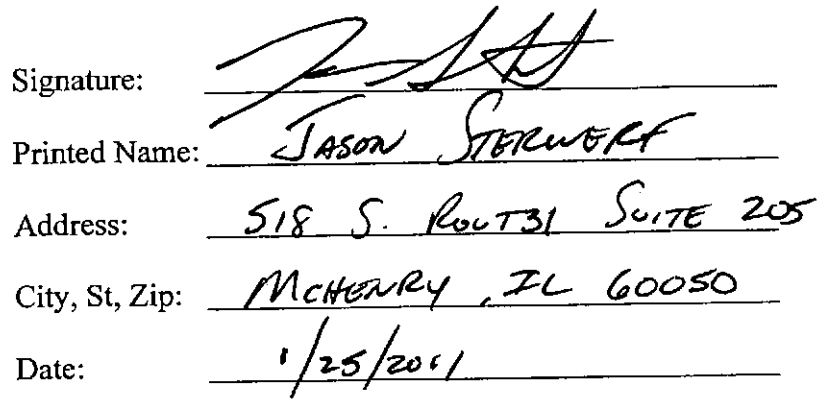 Signature:
Printed Name: JASON STERWERF
Address: 518 S. ROUT31 SUITE 205
City, St, Zip: MCHENRY, IL 60050
Date: 1/25/2011